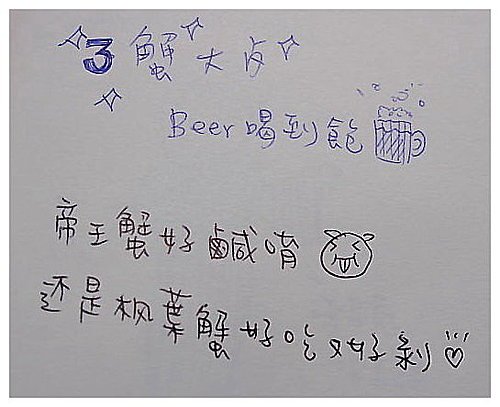 3蟹大卤
Beer喝到飽
帝王蟹好鹹唷
还是枫葉蟹好吃又好剝